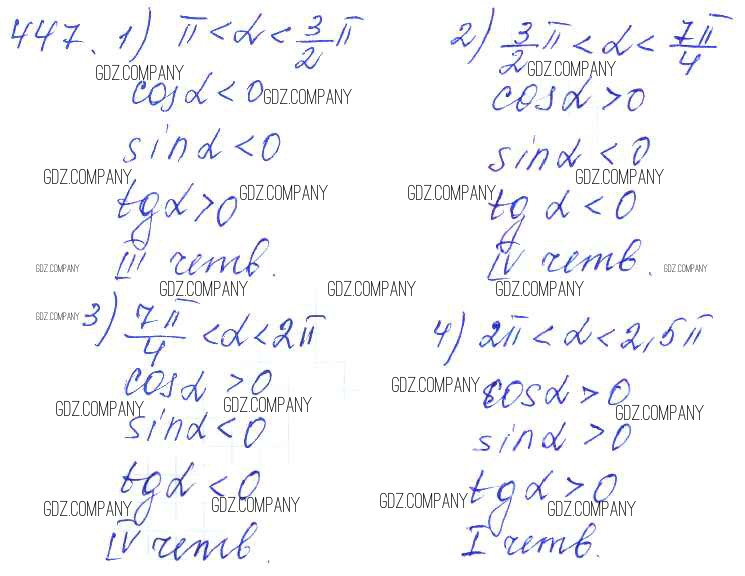 447. 1) π < α < 3/2 π
GDZ.COMPANY
cosα < 0 GDZ.COMPANY
sinα < 0
GDZ.COMPANY
tgα > 0 GDZ.COMPANY
III четв.
GDZ.COMPANY
GDZ.COMPANY
2) 3/2 π < α < 7π/4
GDZ.COMPANY
cosα > 0
sinα < 0
GDZ.COMPANY
GDZ.COMPANY
tg α < 0
IV четв.
GDZ.COMPANY
GDZ.COMPANY
GDZ.COMPANY
GDZ.COMPANY
3) 7π/4 < α < 2π
cosα > 0
GDZ.COMPANY GDZ.COMPANY
sinα < 0
tgα < 0
GDZ.COMPANY GDZ.COMPANY
IV четв.
4) 2π < α < 2,5π
GDZ.COMPANY
cosα > 0
GDZ.COMPANY
sinα > 0
tgα > 0
GDZ.COMPANY GDZ.COMPANY
I четв.